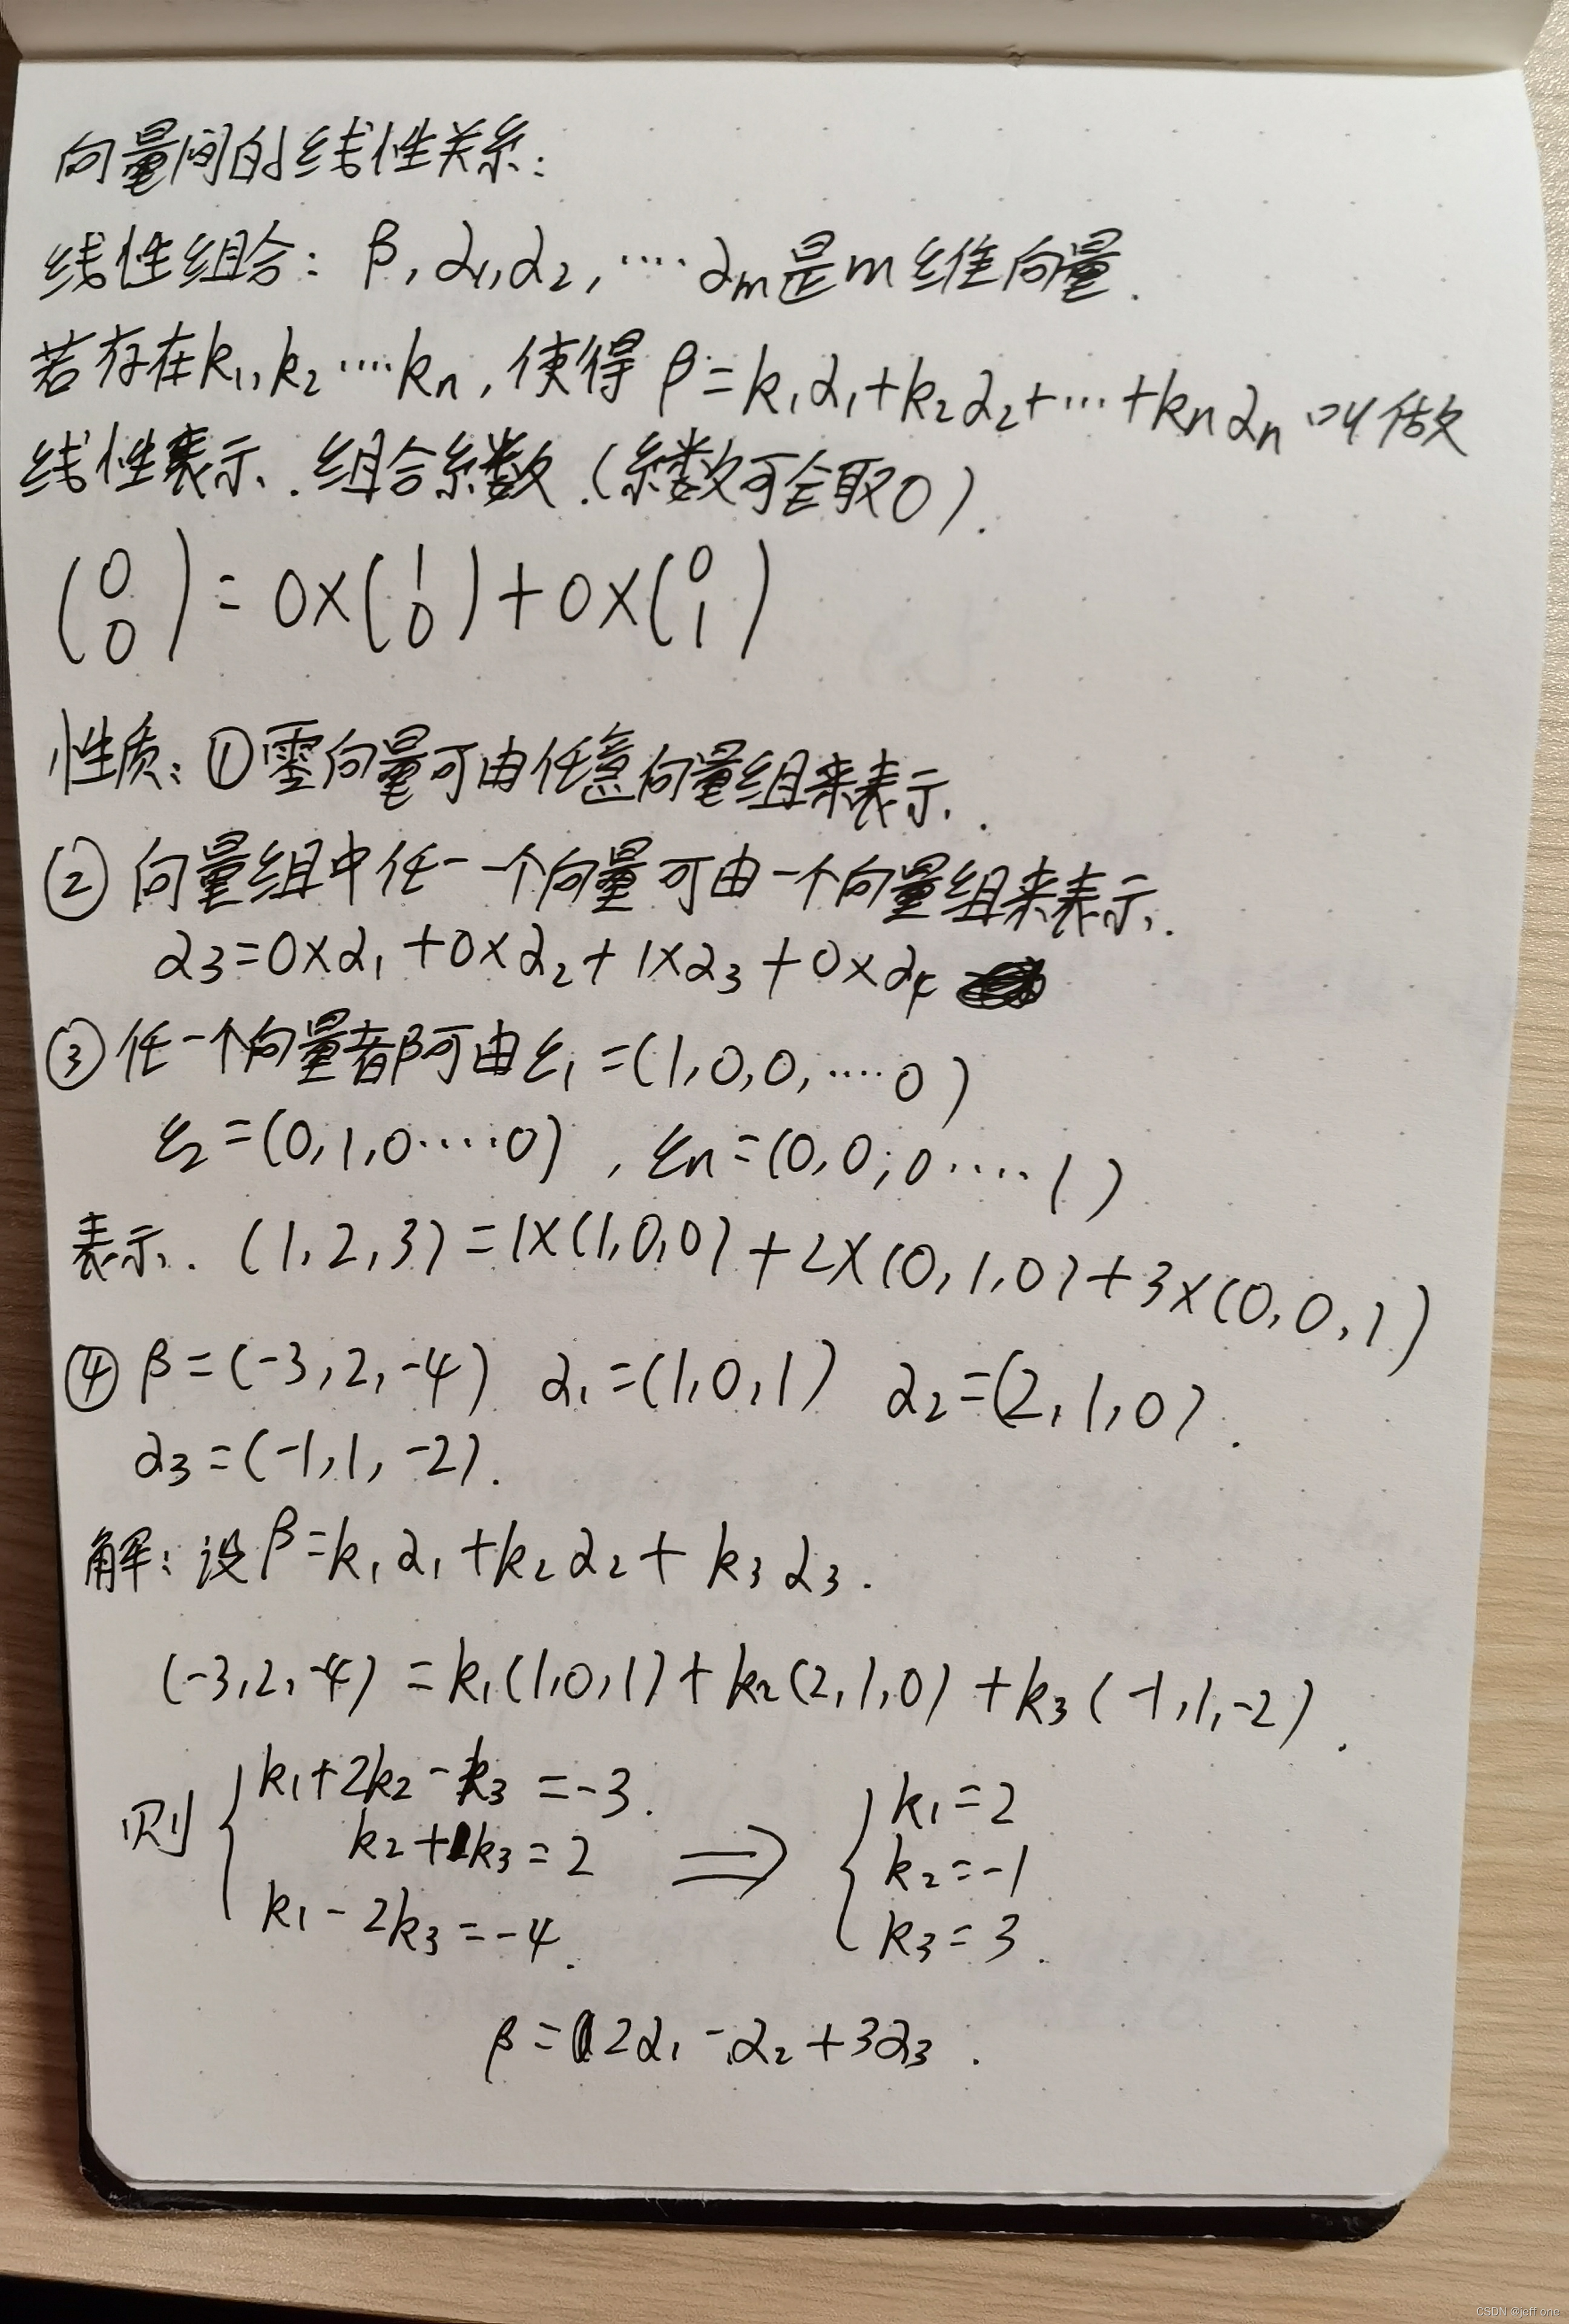 向量间的线性关系:
线性组合: β, α1, α2, ····αm是m维向量.
若存在k1, k2 ····kn, 使得 β=k1α1+k2α2+···+knαn 叫做
线性表示. 组合系数.(系数可全取0).
(0 0)=0×(1 0)+0×(0 1)
性质: ①零向量可由任意向量组来表示.
②向量组中任一个向量可由一个向量组来表示.
α3=0×α1+0×α2+1×α3+0×α4
③任一个向量都可由ε1=(1,0,0,····0)
ε2=(0,1,0····0) , εn=(0,0,0····1)
表示. (1,2,3)=1×(1,0,0)+2×(0,1,0)+3×(0,0,1)
④ β=(-3,2,-4) α1=(1,0,1) α2=(2,1,0).
α3=(-1,1,-2).
解: 设β=k1α1+k2α2+k3α3.
(-3,2,-4)=k1(1,0,1)+k2(2,1,0)+k3(-1,1,-2).
则 { k1+2k2-k3=-3. k1=2
k2+k3=2 ⇒ { k2=-1
k1-2k3=-4. k3=3.
β=2α1-α2+3α3.
CSDN @jeff one